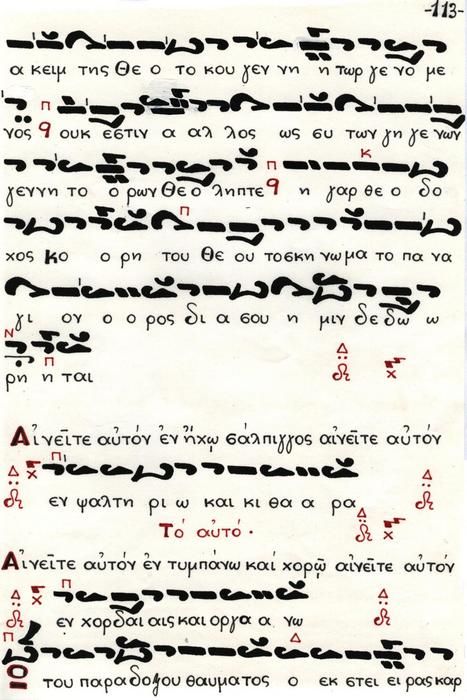 -113-
α κειμ της Θε ο το κου γεν νη η τωρ γε νο με
Π
νος q ουκ εστιν α αλ λος ως συ των γη γε νων
Π Κ
γεννη το ο ρων Θεο ληπτε q η γαρ θε ο δο
Π
χος κο ο ρη του Θε ου το σκη νω μα το πα να
γι ον ο ο ρος δι α σου η μιν δε δω ω
Ν Π Δ
ρη η ται
Αἰνεῖτε αὐτόν ἐν ἤχῳ σάλπιγγος αἰνεῖτε αὐτόν
Δ Π Δ
εν ψαλτη ρι ω και κι θα α ρα
Τό αὐτό. Δ
Αἰνεῖτε αὐτόν ἐν τυμπάνω καί χορῷ αἰνεῖτε αὐτόν
Δ Π Δ
εν χορδαι αις και οργα α νω
Π Δ
του παραδοξου θαυματος ο εκ στει ει ρας καρ